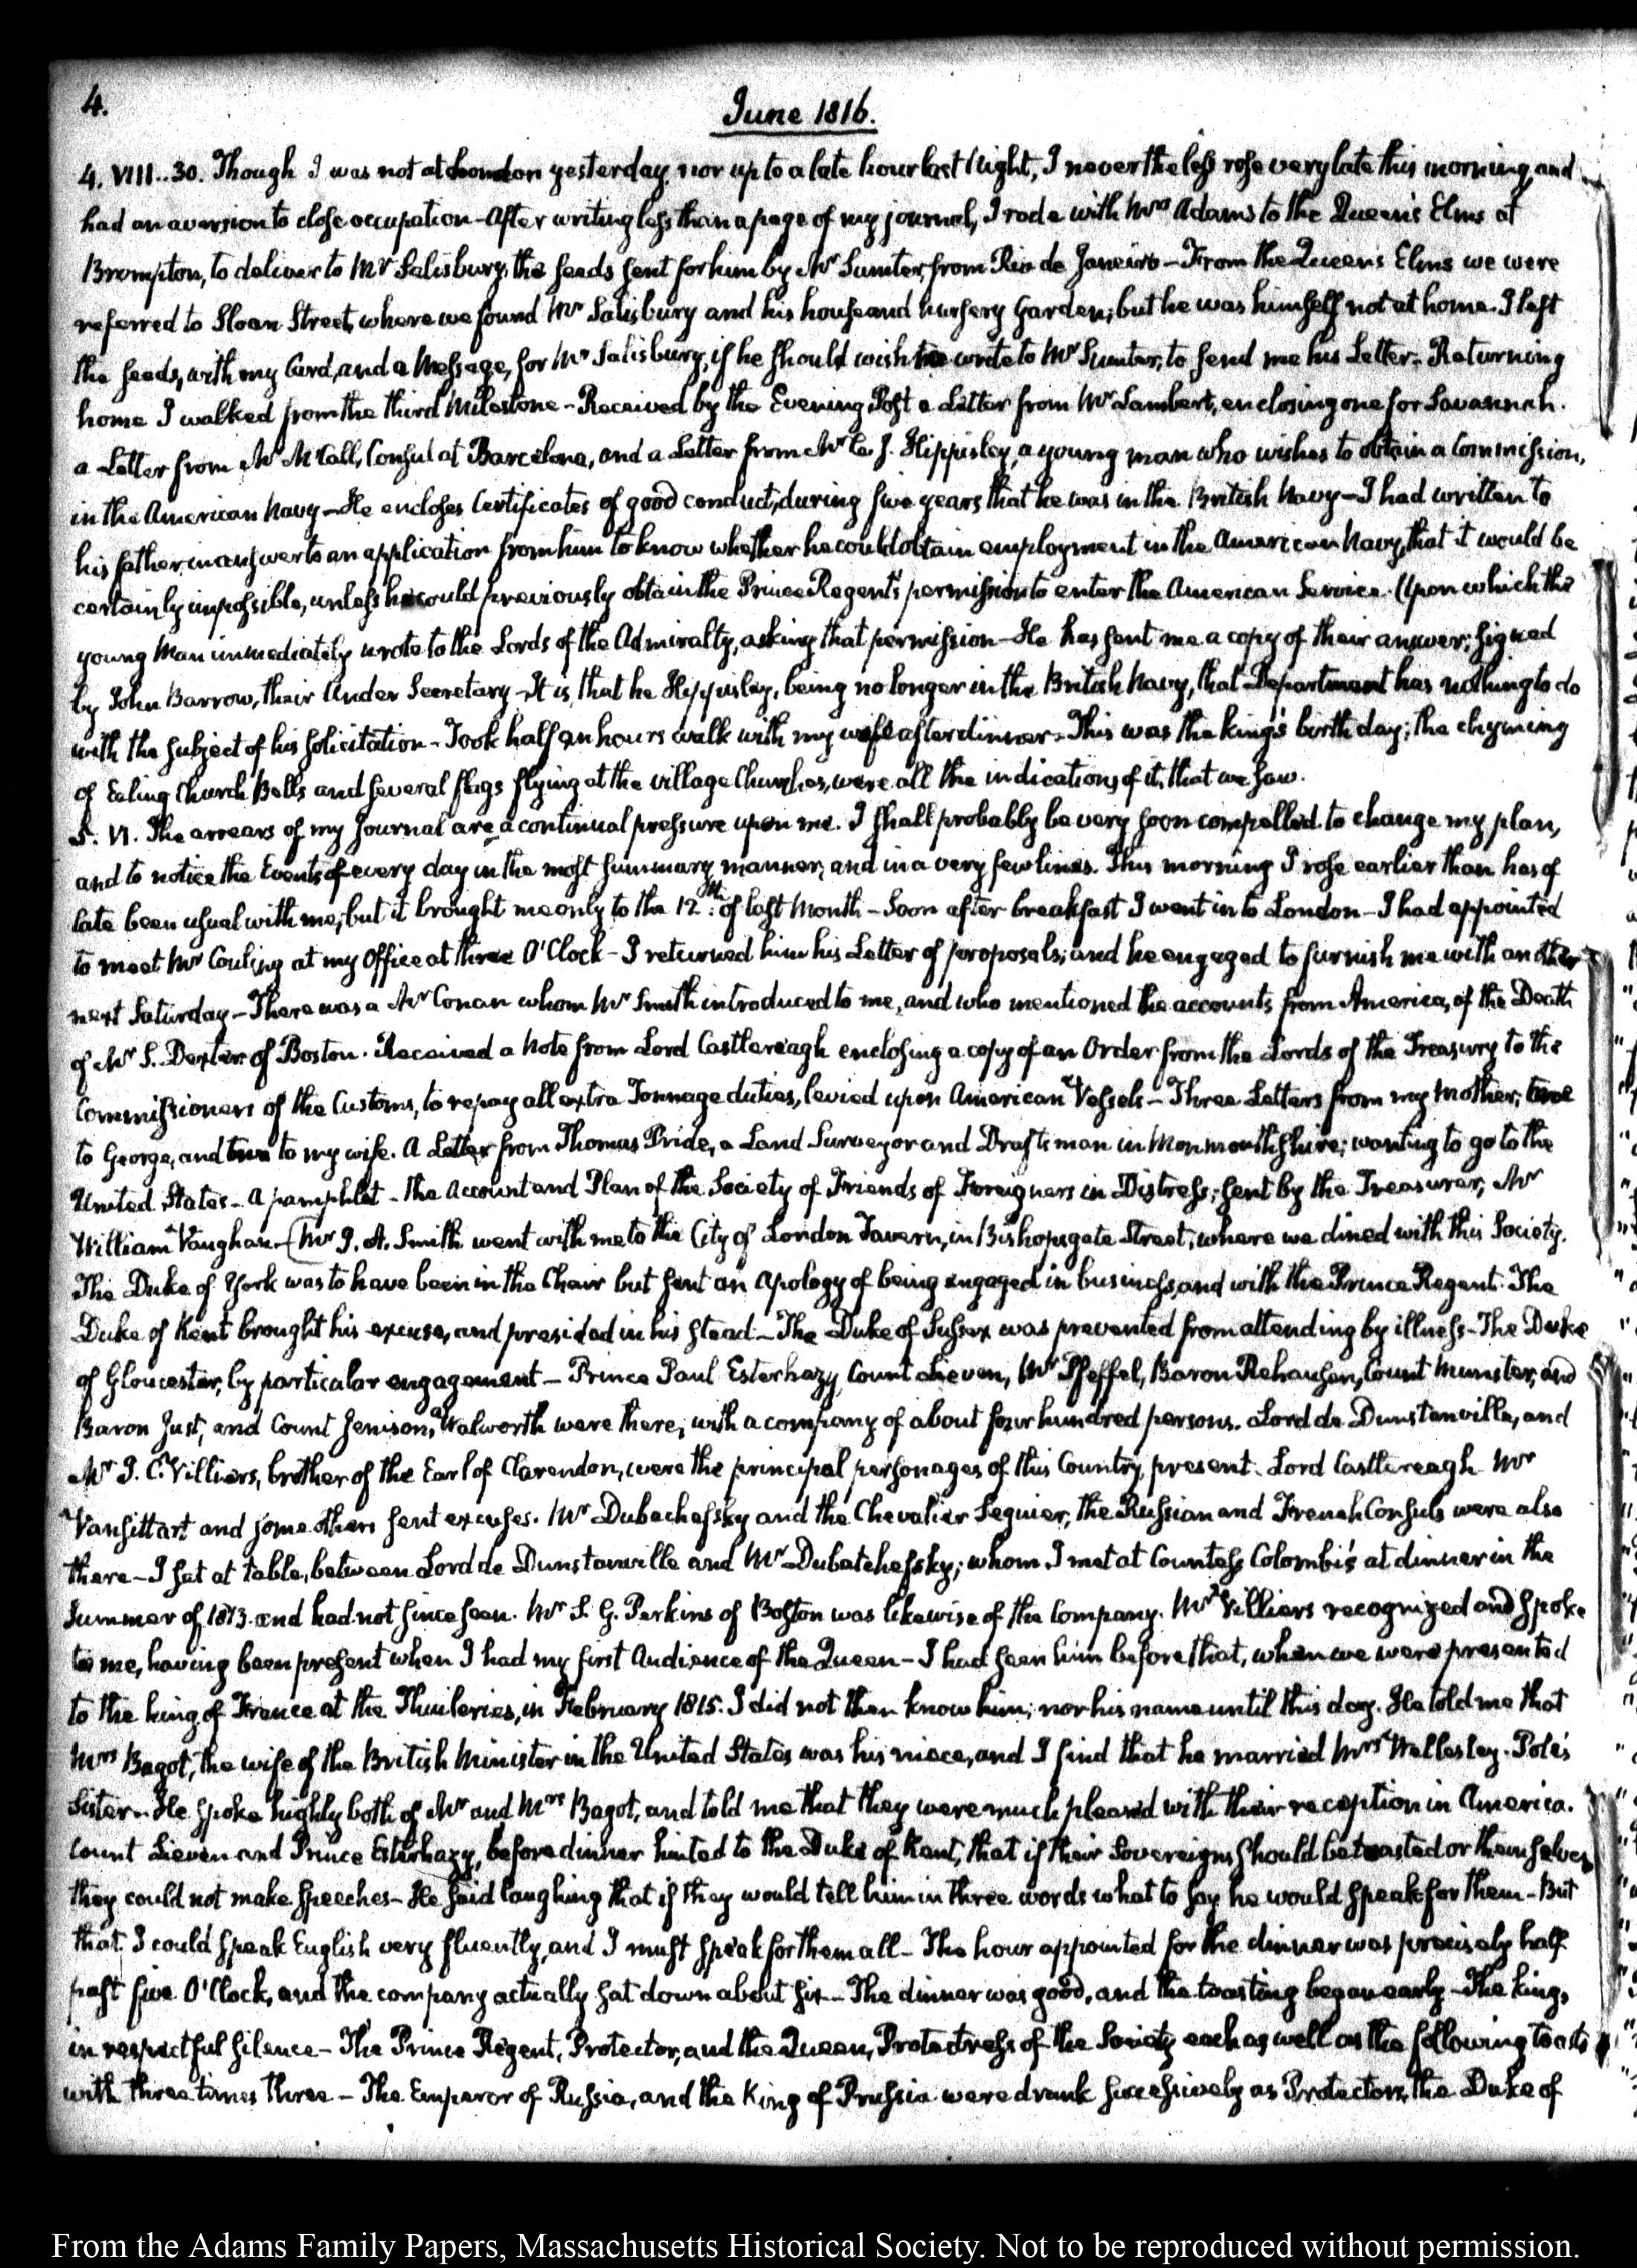 4.
June 1816.
4. VIII..30. Though I was not at London yesterday, nor up to a late hour last Night, I nevertheless rose very late this morning, and
had an aversion to close occupation - After writing less than a page of my journal, I rode with Mrs Adams to the Queen's Elms at
Brompton, to deliver to Mr Salisbury, the seeds sent for him by Mr Sumter, from Rio de Janeiro - From the Queen's Elms we were
referred to Sloan Street, where we found Mr Salisbury and his house and nursery Garden; but he was himself not at home. I left
the seeds, with my Card, and a Message, for Mr Salisbury, if he should wish to write to Mr Sumter, to send me his Letter. Returning
home I walked from the third Milestone - Received by the Evening Post a Letter from Mr Lambert, enclosing one for Savannah.
a Letter from Mr McCall, Consul at Barcelona, and a Letter from Mr J. Hippisley, a young man who wishes to obtain a Commission,
in the American Navy - He encloses Certificates of good conduct, during five years that he was in the British Navy - I had written to
his father, in answer to an application from him to know whether he could obtain employment in the American Navy, that it would be
certainly impossible, unless he could previously obtain the Prince Regent's permission to enter the American Service. Upon which the
young Man immediately wrote to the Lords of the Admiralty, asking that permission - He has sent me a copy of their answer; signed
by John Barrow, their Under Secretary - It is, that he Hippisley, being no longer in the British Navy, that Department has nothing to do
with the subject of his solicitation - Took half an hours walk with my wife after dinner. This was the king's birth day; the chyming
of Ealing Church Bells and several flags flying at the village Churches, were all the indications of it, that we saw.
5. VI. The arrears of my Journal are a continual pressure upon me. I shall probably be very soon compelled to change my plan,
and to notice the Events of every day in the most summary manner, and in a very few lines. This morning I rose earlier than has of
late been usual with me; but it brought me only to the 12th: of last Month - Soon after breakfast I went in to London - I had appointed
to meet Mr Couling at my Office at three O'Clock - I returned him his Letter of proposals; and he engaged to furnish me with another
next Saturday - There was a Mr Conan whom Mr Smith introduced to me, and who mentioned the accounts from America, of the Death
of Mr S. Dexter of Boston. Received a Note from Lord Castlereagh enclosing a copy of an Order from the Lords of the Treasury to the
Commissioners of the Customs, to repay all extra Tonnage duties, levied upon American Vessels - Three Letters from my Mother;
to George, and to my wife. A Letter from Thomas Pride, a Land Surveyor and Draftsman in Monmouthshire; wanting to go to the
United States - A pamphlet - The Account and Plan of the Society of Friends of Foreigners in Distress; sent by the Treasurer, Mr
William Vaughan - (Mr J. A. Smith went with me to the City of London Tavern, in Bishopsgate Street, where we dined with this Society.
The Duke of York was to have been in the Chair but sent an Apology of being engaged in business, and with the Prince Regent. The
Duke of Kent brought his excuse, and presided in his stead - The Duke of Sussex was prevented from attending by illness - The Duke
of Gloucester, by particular engagement - Prince Paul Esterhazy, Count Lieven, Mr Pfeffel, Baron Rehausen, Count Munster, and
Baron Just, and Count Jenison, Walworth were there, with a company of about four hundred persons. Lord de Dunstanville, and
Mr J. C. Villiers, brother of the Earl of Clarendon, were the principal personages of this Country, present. Lord Castlereagh Mr
Vansittart and some others sent excuses. Mr Dubachefsky and the Chevalier Seguier, the Russian and French Consuls were also
there - I sat at table, between Lord de Dunstanville and Mr Dubatchefsky; whom I met at Countess Colombi's at dinner in the
Summer of 1813. and had not since seen. Mr S. G. Perkins of Boston was likewise of the Company. Mr Villiers recognized and spoke
to me, having been present when I had my first Audience of the Queen - I had seen him before that, when we were presented
to the king of France at the Thuileries, in February 1815. I did not then know him; nor his name until this day. He told me that
Mrs Bagot, the wife of the British Minister in the United States was his niece, and I find that he married Mrs Wellesley-Pole's
Sister - He spoke highly both of Mr and Mrs Bagot, and told me that they were much pleased with their reception in America.
Count Lieven and Prince Esterhazy, before dinner hinted to the Duke of Kent, that if their Sovereigns should be toasted or themselves
they could not make speeches - He said laughing that if they would tell him in three words what to say he would speak for them - But
that I could speak English very fluently, and I must speak for them all - The hour appointed for the dinner was precisely half
past five O'Clock, and the company actually sat down about six - The dinner was good, and the toasting began early - The king,
in respectful silence - The Prince Regent, Protector, and the Queen, Protectress of the Society each as well as the following toasts
with three times three - The Emperor of Russia, and the King of Prussia were drank successively as Protectors, the Duke of
From the Adams Family Papers, Massachusetts Historical Society. Not to be reproduced without permission.